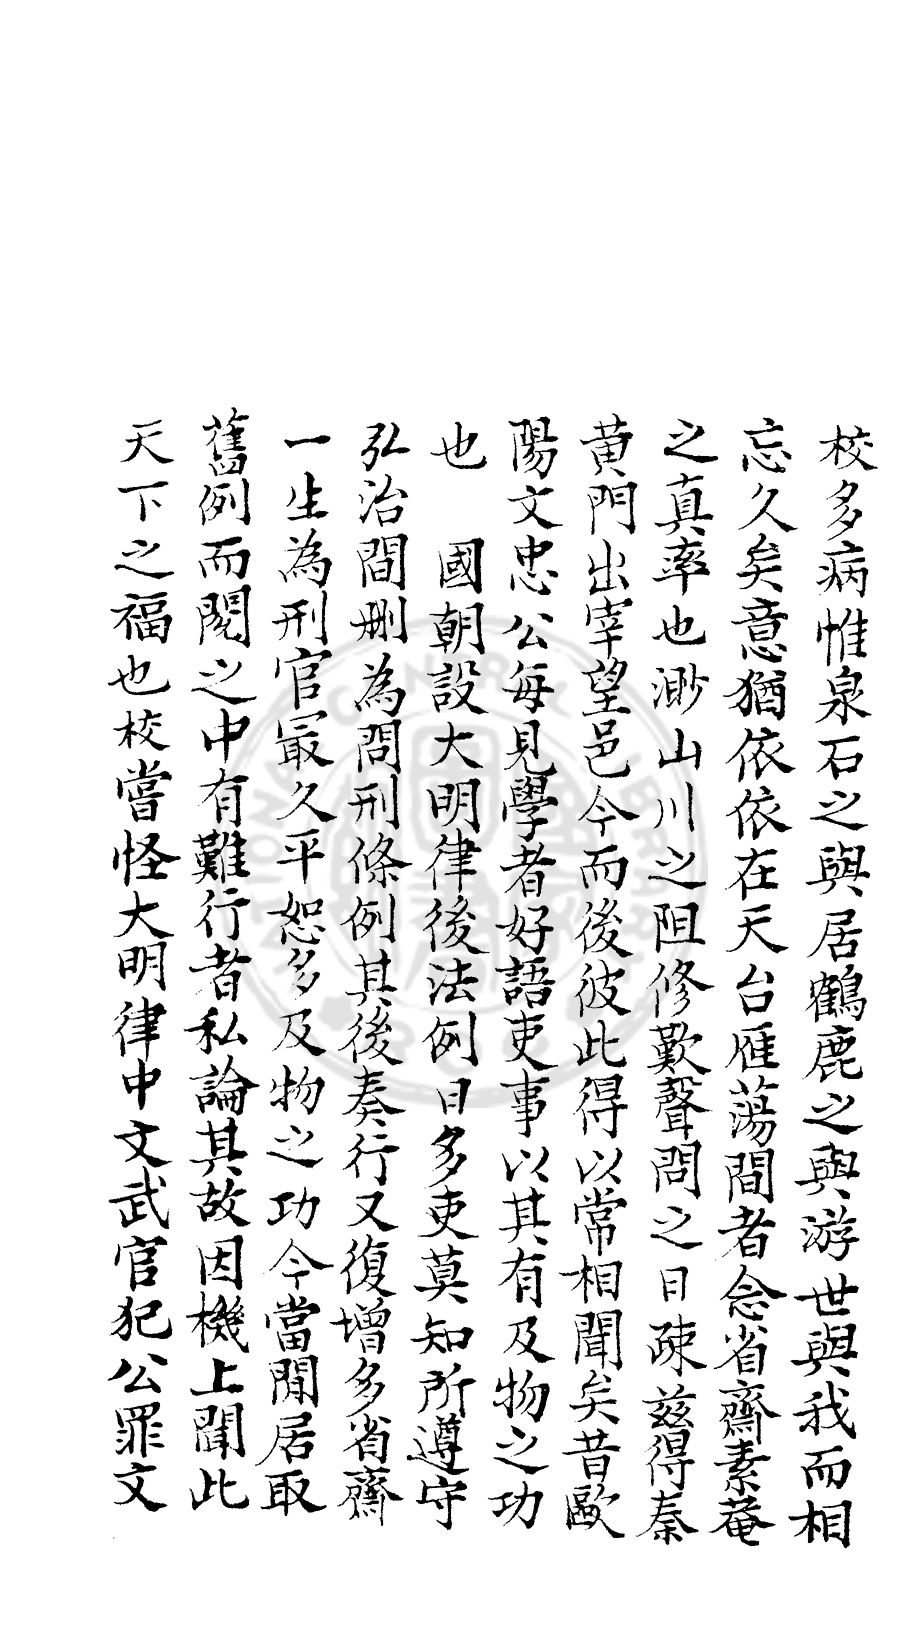 校多病惟泉石之與居鶴鹿之與游世與我而相
忘久矣意猶依依在天台雁蕩間者念省齋素菴
之真率也渺山川之阻修歎聲問之日疎茲得秦
黄門出宰望邑今而後彼此得以常相聞矣昔歐
陽文忠公每見學者好語吏事以其有及物之功
也　國朝設大明律後法例日多吏莫知所遵守
弘治間刪為問刑條例其後奏行又復增多省齋
一生為刑官最久平恕多及物之功今當閒居取
舊例而閱之中有難行者私論其故因機上聞此
天下之福也校嘗怪大明律中文武官犯公罪文